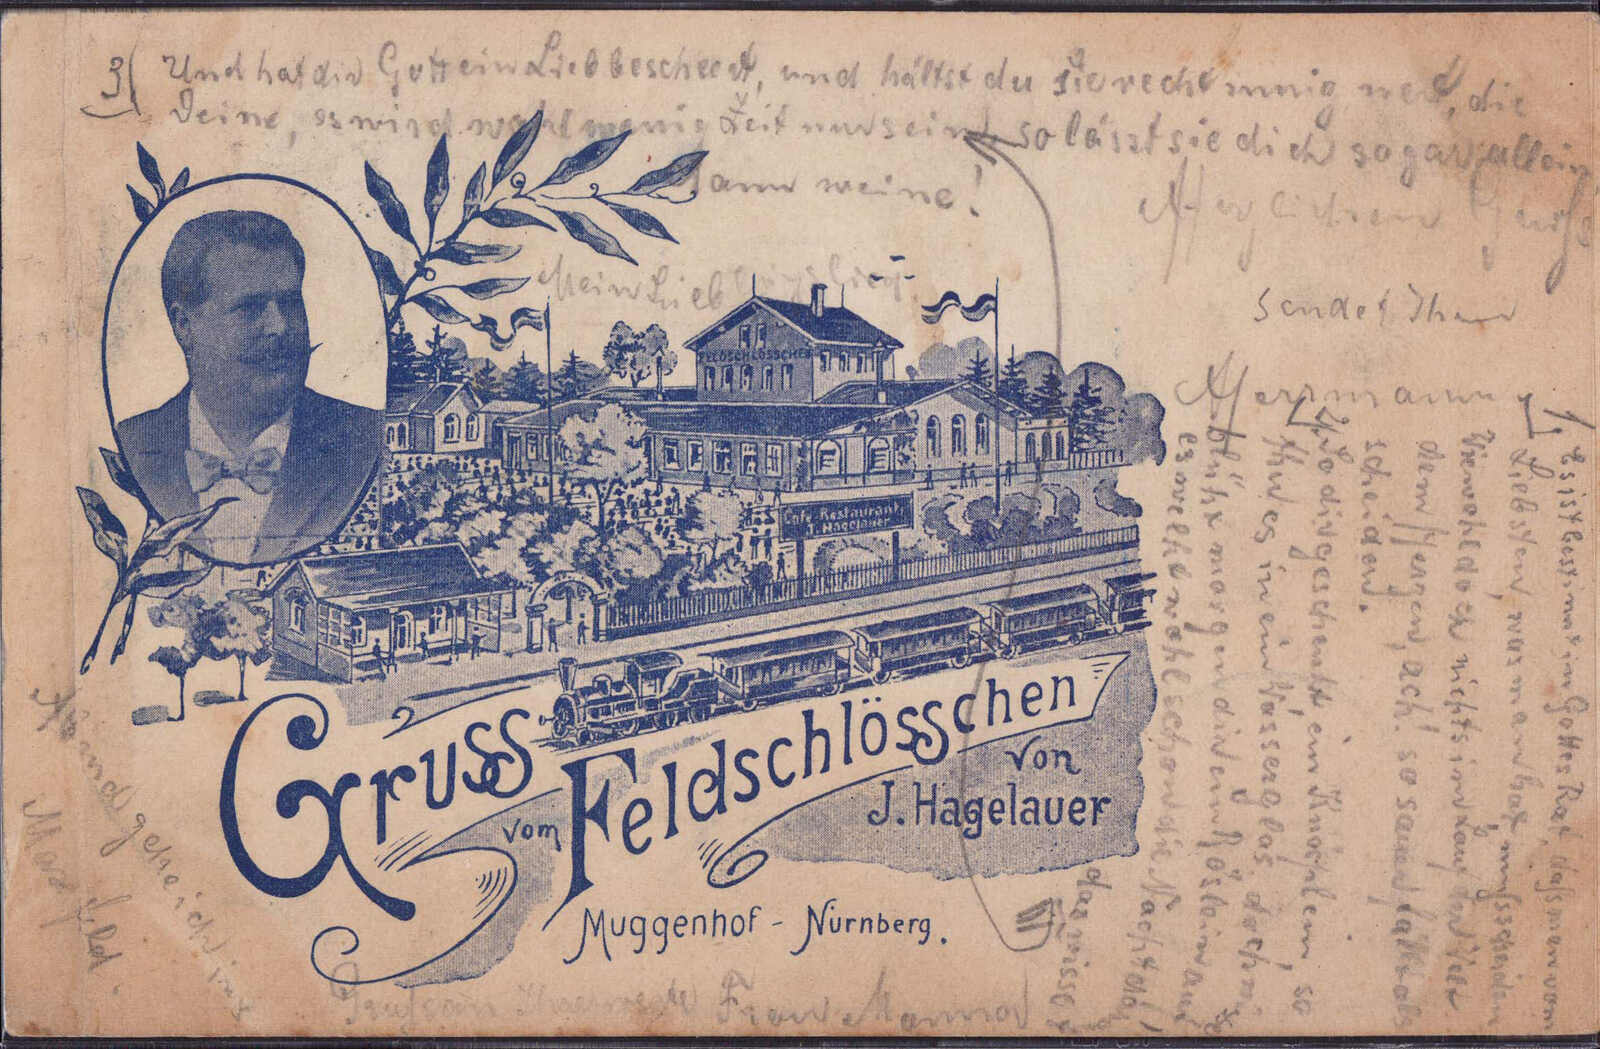 3) Und hat dir Gott ein Lieb bescheert, und hältst du sie recht innig wert, die
Deine, es wird wohl wenig Zeit nur sein, so lässt sie dich so gar allein
Dann weine!
Mein Lieblingslied
Herzlichen Gruß
sendet Ihnen
Hermann
FELDSCHLÖSSCHEN
Café-Restaurant
J. Hagelauer
Gruss
vom Feldschlösschen
von
J. Hagelauer
Muggenhof - Nürnberg.
1) Es ist bestimmt in Gottes Rat, dass man vom
Liebsten, was man hat, muss scheiden
Wiewohl doch nichts im Lauf der Welt
dem Herzen, ach! so sauer fällt als
scheiden.
2) So dir geschenkt ein Knösplein, so
thu es in ein Wasserglas, doch wisse
blüht morgen dir ein Röslein auf
es welkt wohl schon die Nacht drauf
das wisse
Marfeld.
Gruß an Frau